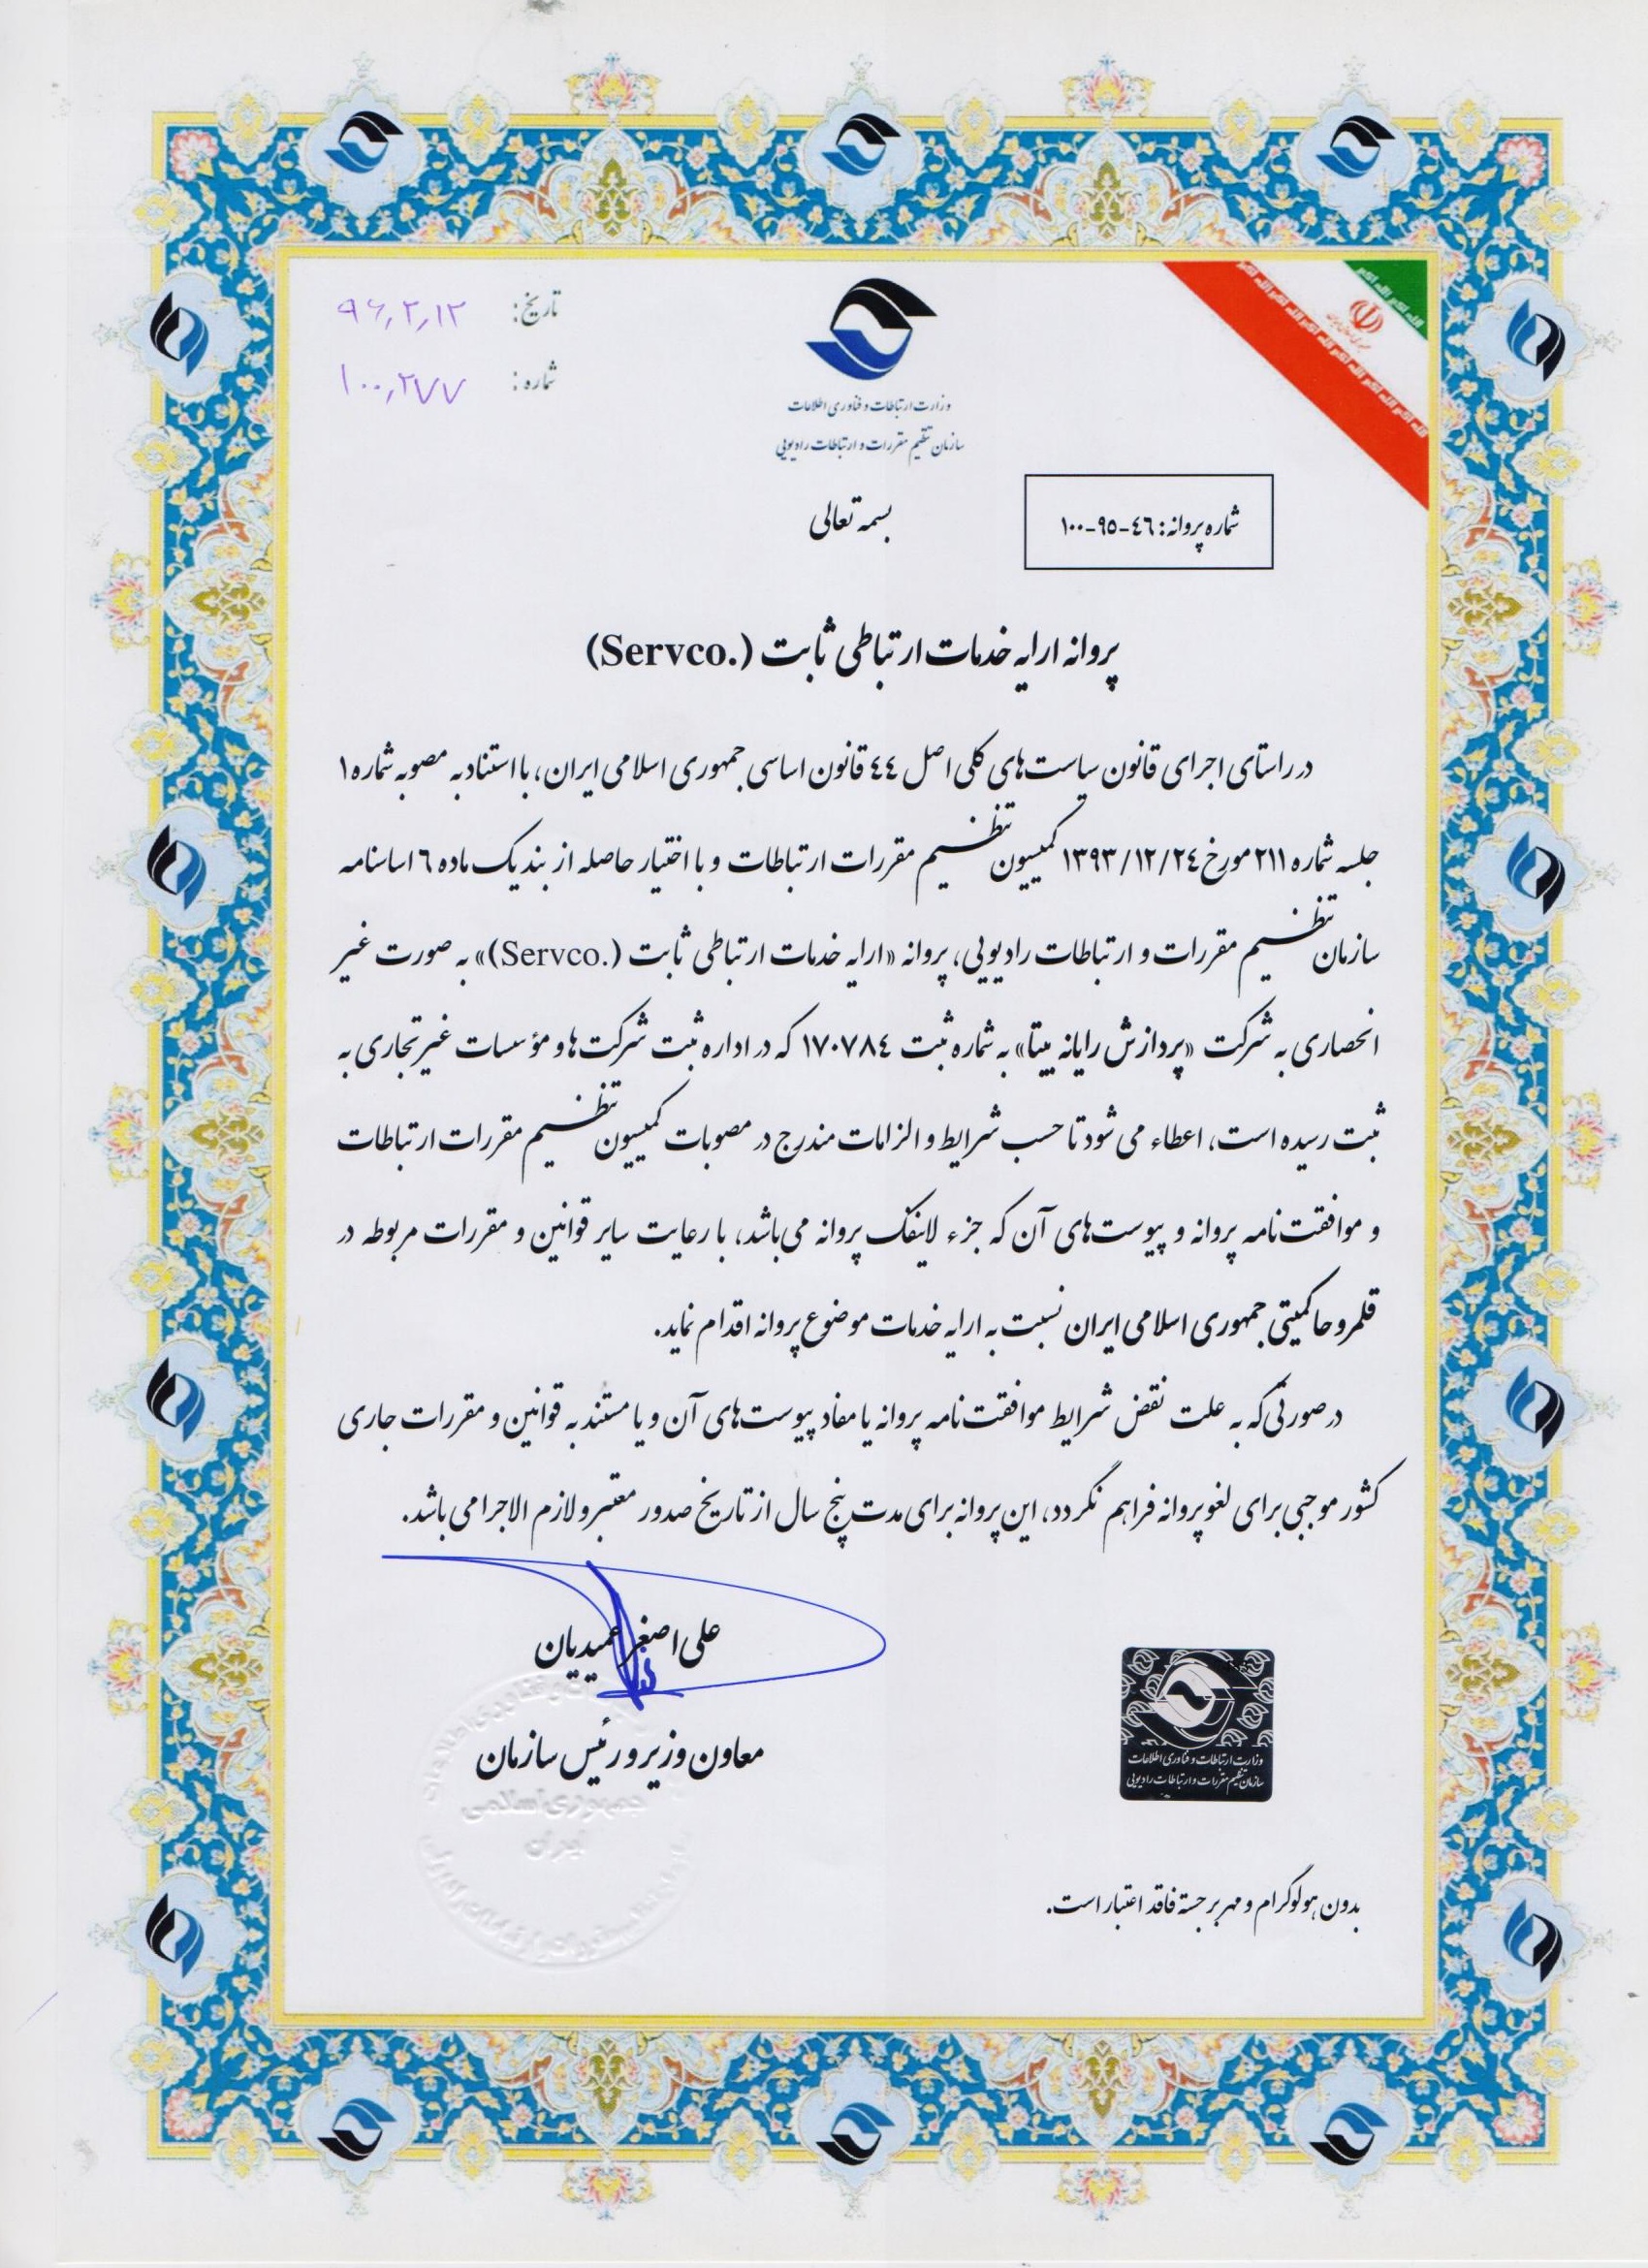 الله اکبر الله اکبر الله اکبر
تاریخ: ۹۶٫۲٫۱۲
شماره: ۱۰۰٫۲۷۷
وزارت ارتباطات و فناوری اطلاعات
سازمان تنظیم مقررات و ارتباطات رادیویی
شماره پروانه: ۴۶-۹۵-۱۰۰
بسمه تعالی
پروانه ارایه خدمات ارتباطی ثابت (Servco.)
در راستای اجرای قانون سیاست‌های کلی اصل ۴۴ قانون اساسی جمهوری اسلامی ایران، با استناد به مصوبه شماره ۱
جلسه شماره ۲۱۱ مورخ ۱۳۹۳/۱۲/۲۴ کمیسیون تنظیم مقررات ارتباطات و با اختیار حاصله از بند یک ماده ۶ اساسنامه
سازمان تنظیم مقررات و ارتباطات رادیویی، پروانه «ارایه خدمات ارتباطی ثابت (Servco.)» به صورت غیر
انحصاری به شرکت «پردازش رایانه بیتا» به شماره ثبت ۱۷۰۷۸۴ که در اداره ثبت شرکت‌ها و مؤسسات غیرتجاری به
ثبت رسیده است، اعطاء می شود تا حسب شرایط و الزامات مندرج در مصوبات کمیسیون تنظیم مقررات ارتباطات
و موافقت‌نامه پروانه و پیوست‌های آن که جزء لاینفک پروانه می‌باشد، با رعایت سایر قوانین و مقررات مربوطه در
قلمرو حاکمیتی جمهوری اسلامی ایران نسبت به ارایه خدمات موضوع پروانه اقدام نماید.
در صورتی که به علت نقض شرایط موافقت‌نامه پروانه یا مفاد پیوست‌های آن و یا مستند به قوانین و مقررات جاری
کشور موجبی برای لغو پروانه فراهم نگردد، این پروانه برای مدت پنج سال از تاریخ صدور معتبر و لازم الاجرا می باشد.
علی اصغر عمیدیان
معاون وزیر و رئیس سازمان
جمهوری اسلامی
ایران
وزارت ارتباطات و فناوری اطلاعات
سازمان تنظیم مقررات و ارتباطات رادیویی
بدون هولوگرام و مهر برجسته فاقد اعتبار است.